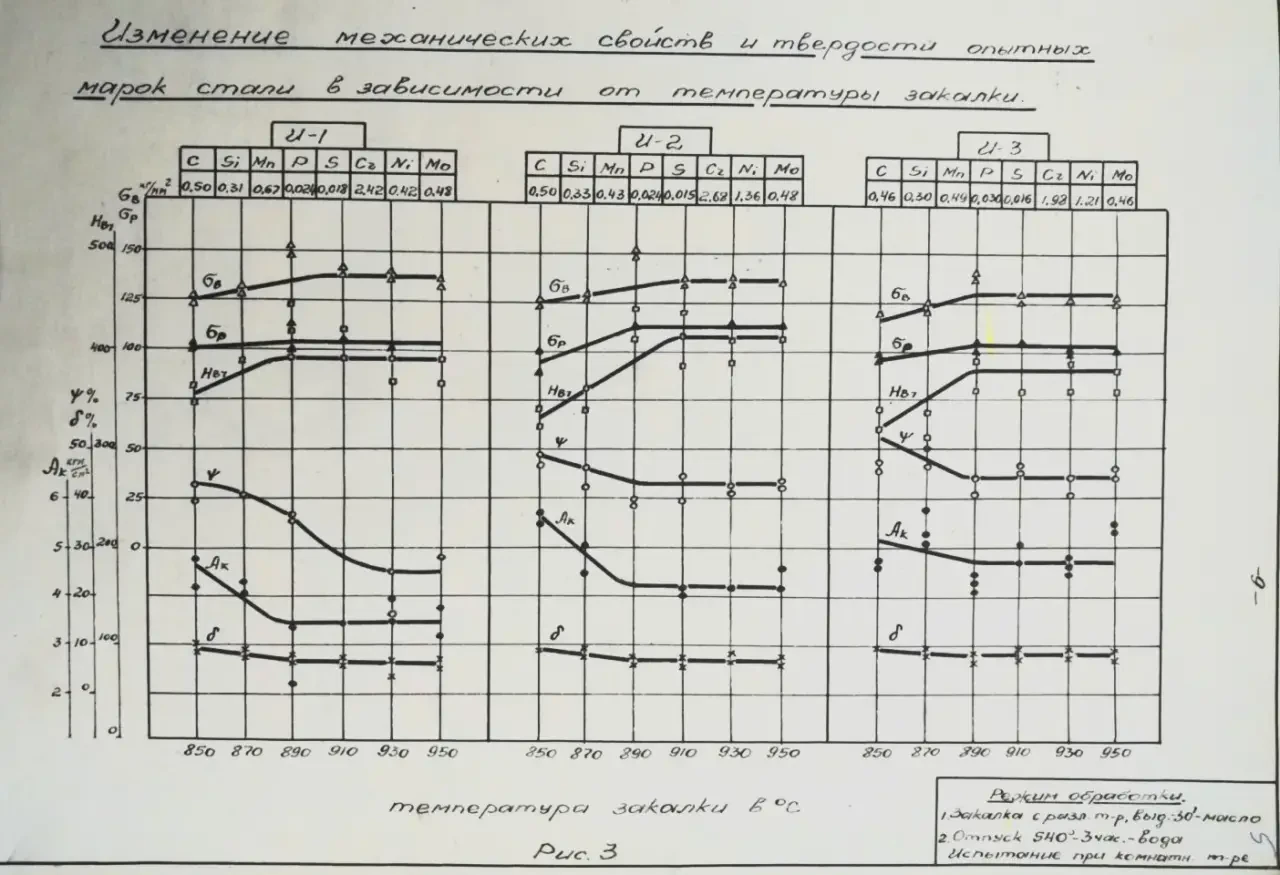 Изменение механических свойств и твердости опытных
марок стали в зависимости от температуры закалки.
И-1
C Si Mn P S Cr Ni Mo
0.50 0.31 0.67 0.024 0.018 2.42 0.42 0.48
И-2
C Si Mn P S Cr Ni Mo
0.50 0.33 0.43 0.024 0.015 2.68 1.36 0.48
И-3
C Si Mn P S Cr Ni Mo
0.46 0.30 0.49 0.030 0.016 1.92 1.21 0.46
σв кг/мм²
σр
Нвт
500 150
125
400 100
75
ψ%
δ%
50 300 50
Ак кгм/см²
6 40 25
5 30 200 0
4 20
3 10 100
2 0
0
σв
σр
Нвт
ψ
Ак
δ
σв
σр
Нвт
ψ
Ак
δ
σв
σр
Нвт
ψ
Ак
δ
850 870 890 910 930 950
850 870 890 910 930 950
850 870 890 910 930 950
температура закалки в °С
Рис. 3
Режим обработки.
1. Закалка с разл. т-р, выд.-30'-масло
2. Отпуск 540°-3час.-вода
Испытание при комнатн. т-ре
-9-